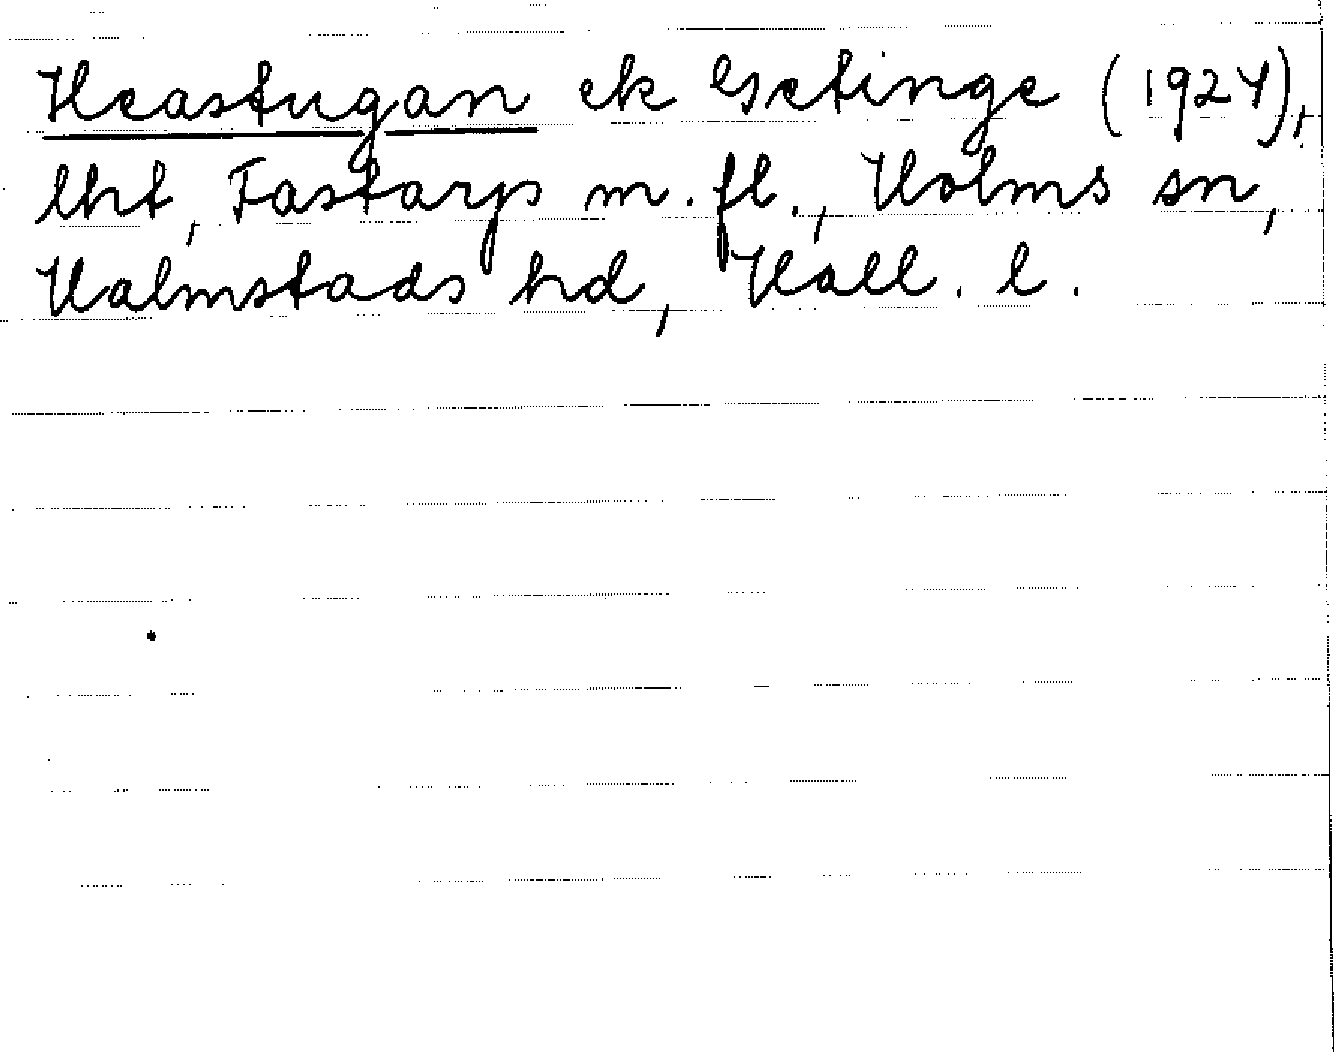 Heastugan ek Getinge (1924),
lht, Fastarp m. fl., Holms sn,
Halmstads hd, Hall. l.